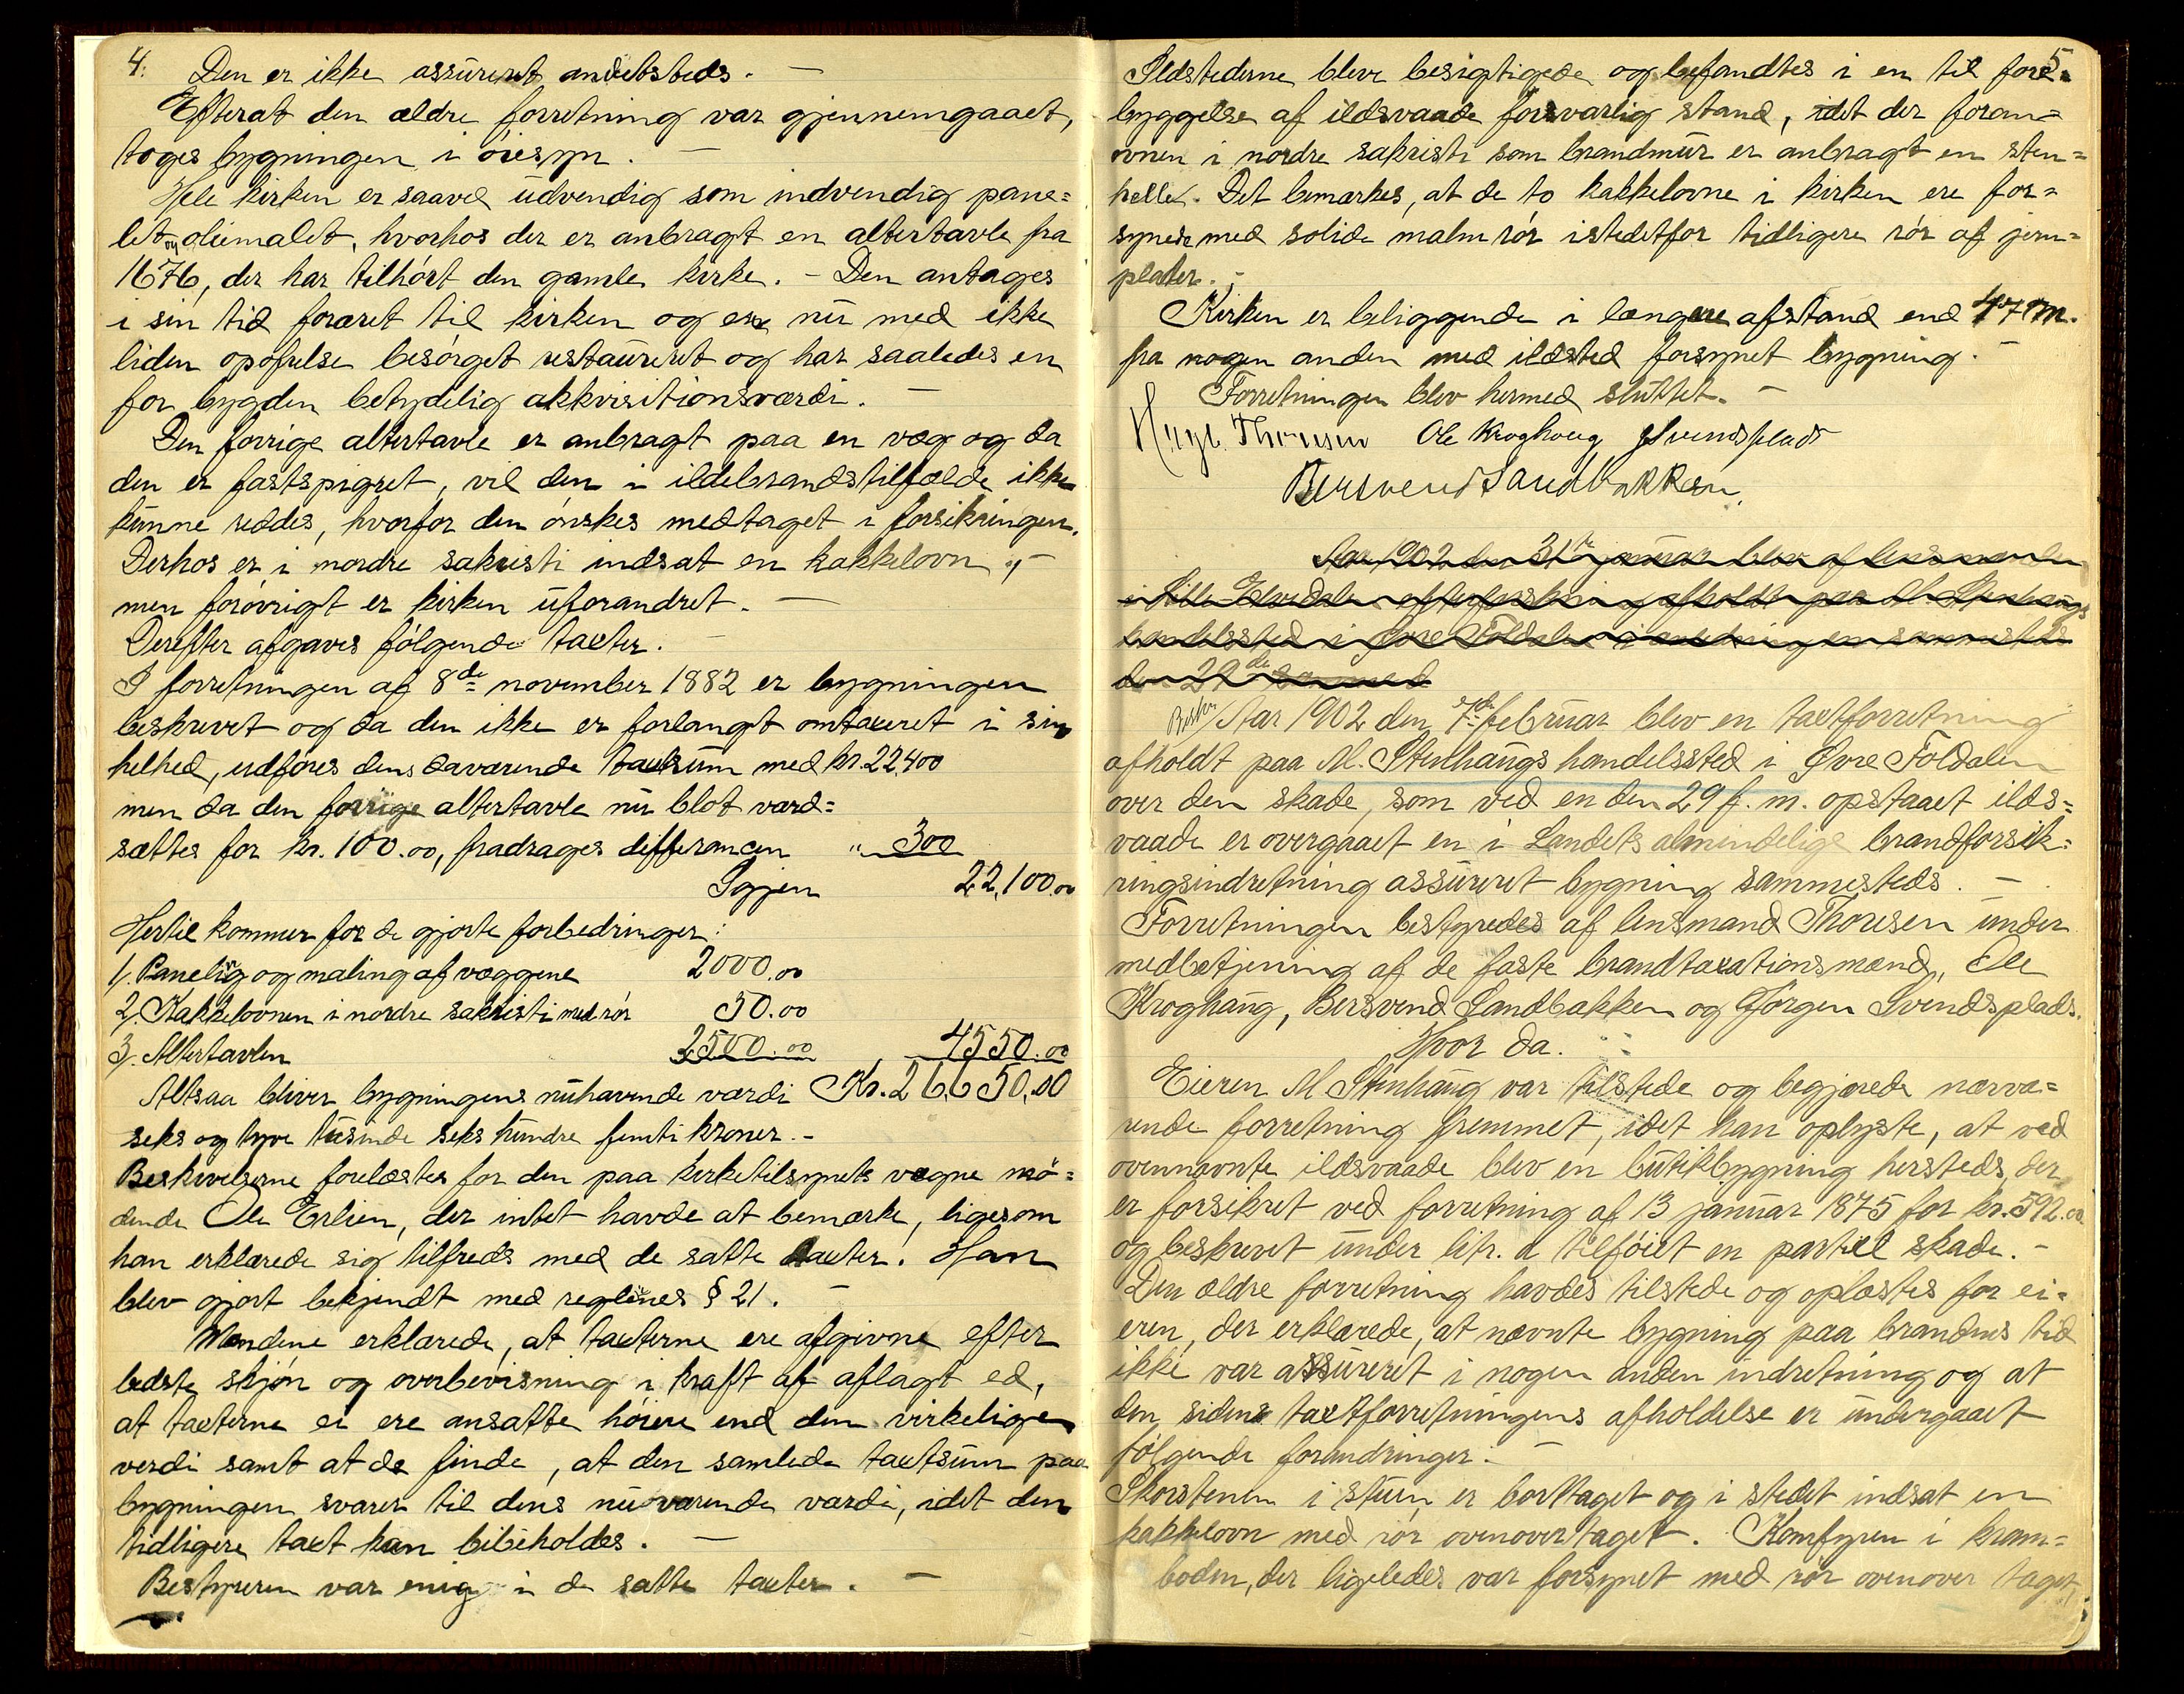 4.
Den er ikke assureret andetsteds. —
Efterat den ældre forretning var gjennemgaaet,
toges bygningen i øiesyn. —
Hele kirken er saavel udvendig som indvendig pane=
let og oliemalet, hvorhos der er anbragt en altertavle fra
1676, der har tilhørt den gamle kirke. – Den antages
i sin tid foræret til kirken og er nu med ikke
liden opofrelse besørget restaureret og har saaledes en
for bygden betydelig akkvisitionsværdi. —
Den forrige altertavle er anbragt paa en væg og da
den er fastspigret, vil den i ildebrandstilfælde ikke
kunne reddes, hvorfor den ønskes medtaget i forsikringen.
Derhos er i nordre sakristi indsat en kakkelovn, –
men forøvrigt er kirken uforandret. —
Derefter afgaves følgende taxter. —
I forretningen af 8de november 1882 er bygningen
beskrevet og da den ikke er forlangt omtaxeret i sin
helhed, udføres dens daværende taxtsum med kr. 22400
men da den forrige altertavle nu blot værd=
sættes for kr. 100.00, fradrages differancen " 300
Igjen 22,100.00
Hertil kommer for de gjorte forbedringer:
1/. Paneling og maling af væggene 2000.00
2/. Kakkelovnen i nordre sakristi med rør 50.00
3/. Altertavlen 2500.00 , 4550.00
Altsaa bliver bygningens nuhavende værdi Kr. 26650,00
seks og tyve tusinde seks hundre femti kroner. –
Beskrivelserne forelæstes for den paa kirketilsynets vegne mø=
dende Ole Erlien, der intet havde at bemærke, ligesom
han erklærede sig tilfreds med de satte taxter. Han
blev gjort bekjendt med reglines § 21. —
Mændene erklærede, at taxterne ere afgivne efter
bedste skjøn og overbevisning i kraft af aflagt ed,
at taxterne ei ere ansatte høiere end den virkelige
verdi samt at de finde, at den samlede taxtsum paa
bygningen svarer til dens nuværende værdi, idet den
tidligere taxt kan bibeholdes. —
Bestyreren var enig i de satte taxter. —
5.
Ildstederne bleve besigtigede og befandtes i en til fore=
byggelse af ildsvaade forsvarlig stand, idet der foran=
ovnen i nordre sakristi som brandmur er anbragt en sten=
helle. Det bemærkes, at de to kakkelovne i kirken ere for=
synede med solide malm rør istedetfor tidligere rør af jern=
plader. –
Kirken er beliggende i længere afstand end 47 m.
fra nogen anden med ildsted forsynet bygning. —
Forretningen blev hermed sluttet. —
Thoresen Ole Kroghoug JSvendsplads
Bersvend Sandbakken
Aar 1902 den 31te januar blev af lensmanden
i Lille Elvedalen efterforskning afholdt paa M. Stenhaugs
handelssted i Øvre Foldalen i anledning en sammesteds
den 29de
Aar 1902 den 7de februar blev en taxtforretning
afholdt paa M. Stenhaugs handelssted i Øvre Foldalen
over den skade, som ved en den 29 f. m. opstaaet ilds=
vaade er overgaaet en i Landets almindelige brandforsik=
ringsindretning assureret bygning sammesteds. —
Forretningen bestyredes af lensmand Thoresen under
medbetjening af de faste brandtaxationsmænd, Ole
Kroghaug, Bersvend Sandbakken og Jørgen Svendsplads.
Hvor da:
Eieren M Stenhaug var tilstede og begjærede nærvæ=
rende forretning fremmet, idet han oplyste, at ved
ovennævnte ildsvaade blev en butikbygning hersteds, der
er forsikret ved forretning af 13 januar 1875 for kr. 592.00
og beskrevet under litr. a tilføiet en partiel skade. –
Den ældre forretning havdes tilstede og oplæstes for ei=
eren, der erklærede, at nævnte bygning paa brandens tid
ikke var assureret i nogen anden indretning og at
den, sidens taxtforretningens afholdelse er undergaaet
følgende forandringer: —
Skorstenen i stuen er borttaget og i stedet indsat en
kakkelovn med rør ovenover taget. Komfyren i kram=
boden, der ligeledes var forsynet med rør ovenover taget,